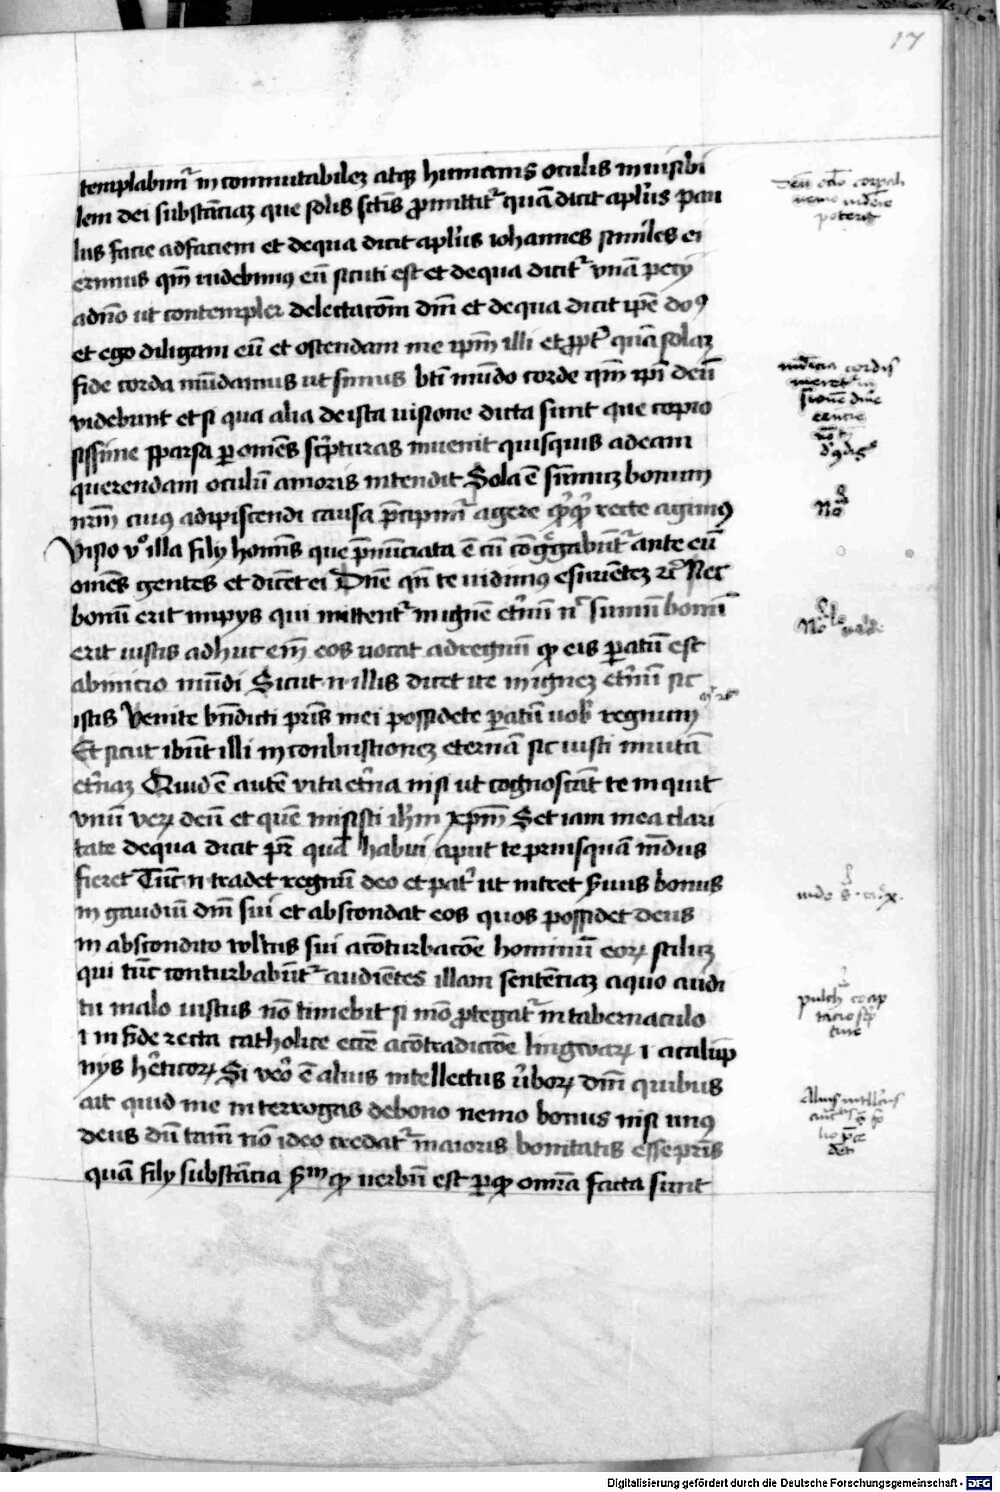 17
templabimur incommutabilez atque humanis oculis inuisibi
lem dei substāciaz que solis sctīs ꝓmittitur quā dicit aplūs pau
lus facie adfaciem et dequa dicit aplūs iohannes similes ei
erimus qm̄ videbimus eū sicuti est et dequa dicitur vnā pecij
adn̄o ut contempler delectacōm dn̄i et dequa dicit ip̄e do
et ego diligam eū et ostendam me ip̄m illi et ꝓpter quā solaz
fide corda mūdamus ut simus bt̄i mūdo corde qm̄ ip̄i deū
videbunt et si qua alia de ista uisione dicta sunt que copio
sissime sparsa ꝑ omēs sc̄pturas inuenit quisquis ad eam
querendam oculū amoris intendit Sola ē sūmuz bonum
nr̄m cuius adipiscendi causa p̄cipimur agere recte agimus
Visio vº illa filij hominis que p̄nūciata ē cū cōgregabūtur ante eū
omēs gentes et dicēt ei Dn̄e qn̄ te uidimus esurientez Nec
bonū erit impijs qui mittentur in ignē et'nū nec sumū bonū
erit iustis adhuc em̄ eos uocat adregnū quod eis ꝑatū est
abinicio mūdi Sicut n illis dicet ite in ignez et'nū sic
istis Venite bn̄dicti pr̄is mei possidete ꝑatū uob regnum
Et sicut ibūt illi in conbustionez eternā sic iusti in uitā
et'naz Quid ē autē vita et'na nisi ut cognoscāt te inquit
vnū verū deū et quē misisti ih̄m xp̄m Set iam mea clari
tate dequa dicit pr̄i quā habui aput te priusquā mūdus
fieret Tūc n tradet regnū deo et patri ut intret s̄uus bonus
in gaudiū dn̄i sui et abscondat eos quos possidet deus
in abscondito wltus sui acōturbacōe hominū eorum scilicz
qui tūc conturbabūtur audiētes illam sentēciaz aquo audi
tu malo iustus nō timebit si mō ꝓtegatur in tabernaculo
i in fide recta catholice eccē acōtradictōe lingwarum i acalūp
nijs hēticorum Si vērō ē alius intellectus ūborum dn̄i quibus
ait quid me interrogas debono nemo bonus nisi unus
deus dū tam̄ nō ideo credatur maioris bonitatis esse pr̄is
quā filij substācia quod uerbū est ꝑ quod omīa facta sunt
nemo videre
poterit
cordis
Digitalisierung gefördert durch die Deutsche Forschungsgemeinschaft - DFG